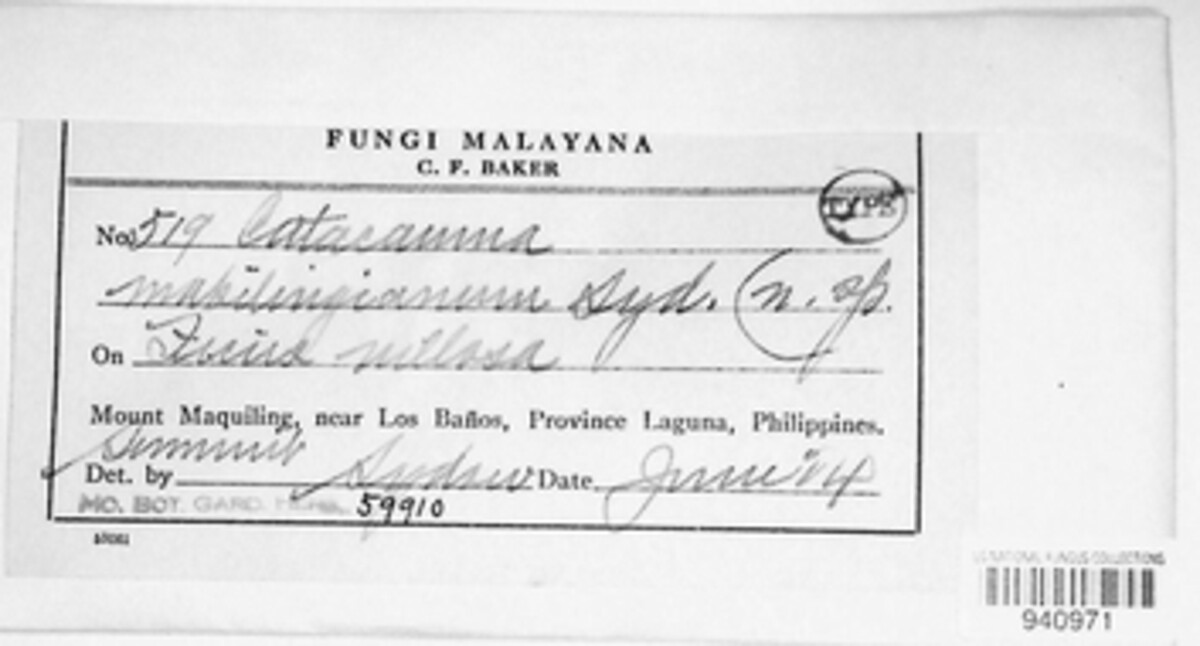 FUNGI MALAYANA
C. F. BAKER
TYPE
No. 519 Catacauma
makilingianum Syd. (n. sp.
On Ficus villosa
Mount Maquiling, near Los Baños, Province Laguna, Philippines.
Summit
Det. by Sydow Date June '14
MO. BOT. GARD. HERB. 59910
US NATIONAL FUNGUS COLLECTIONS
940971